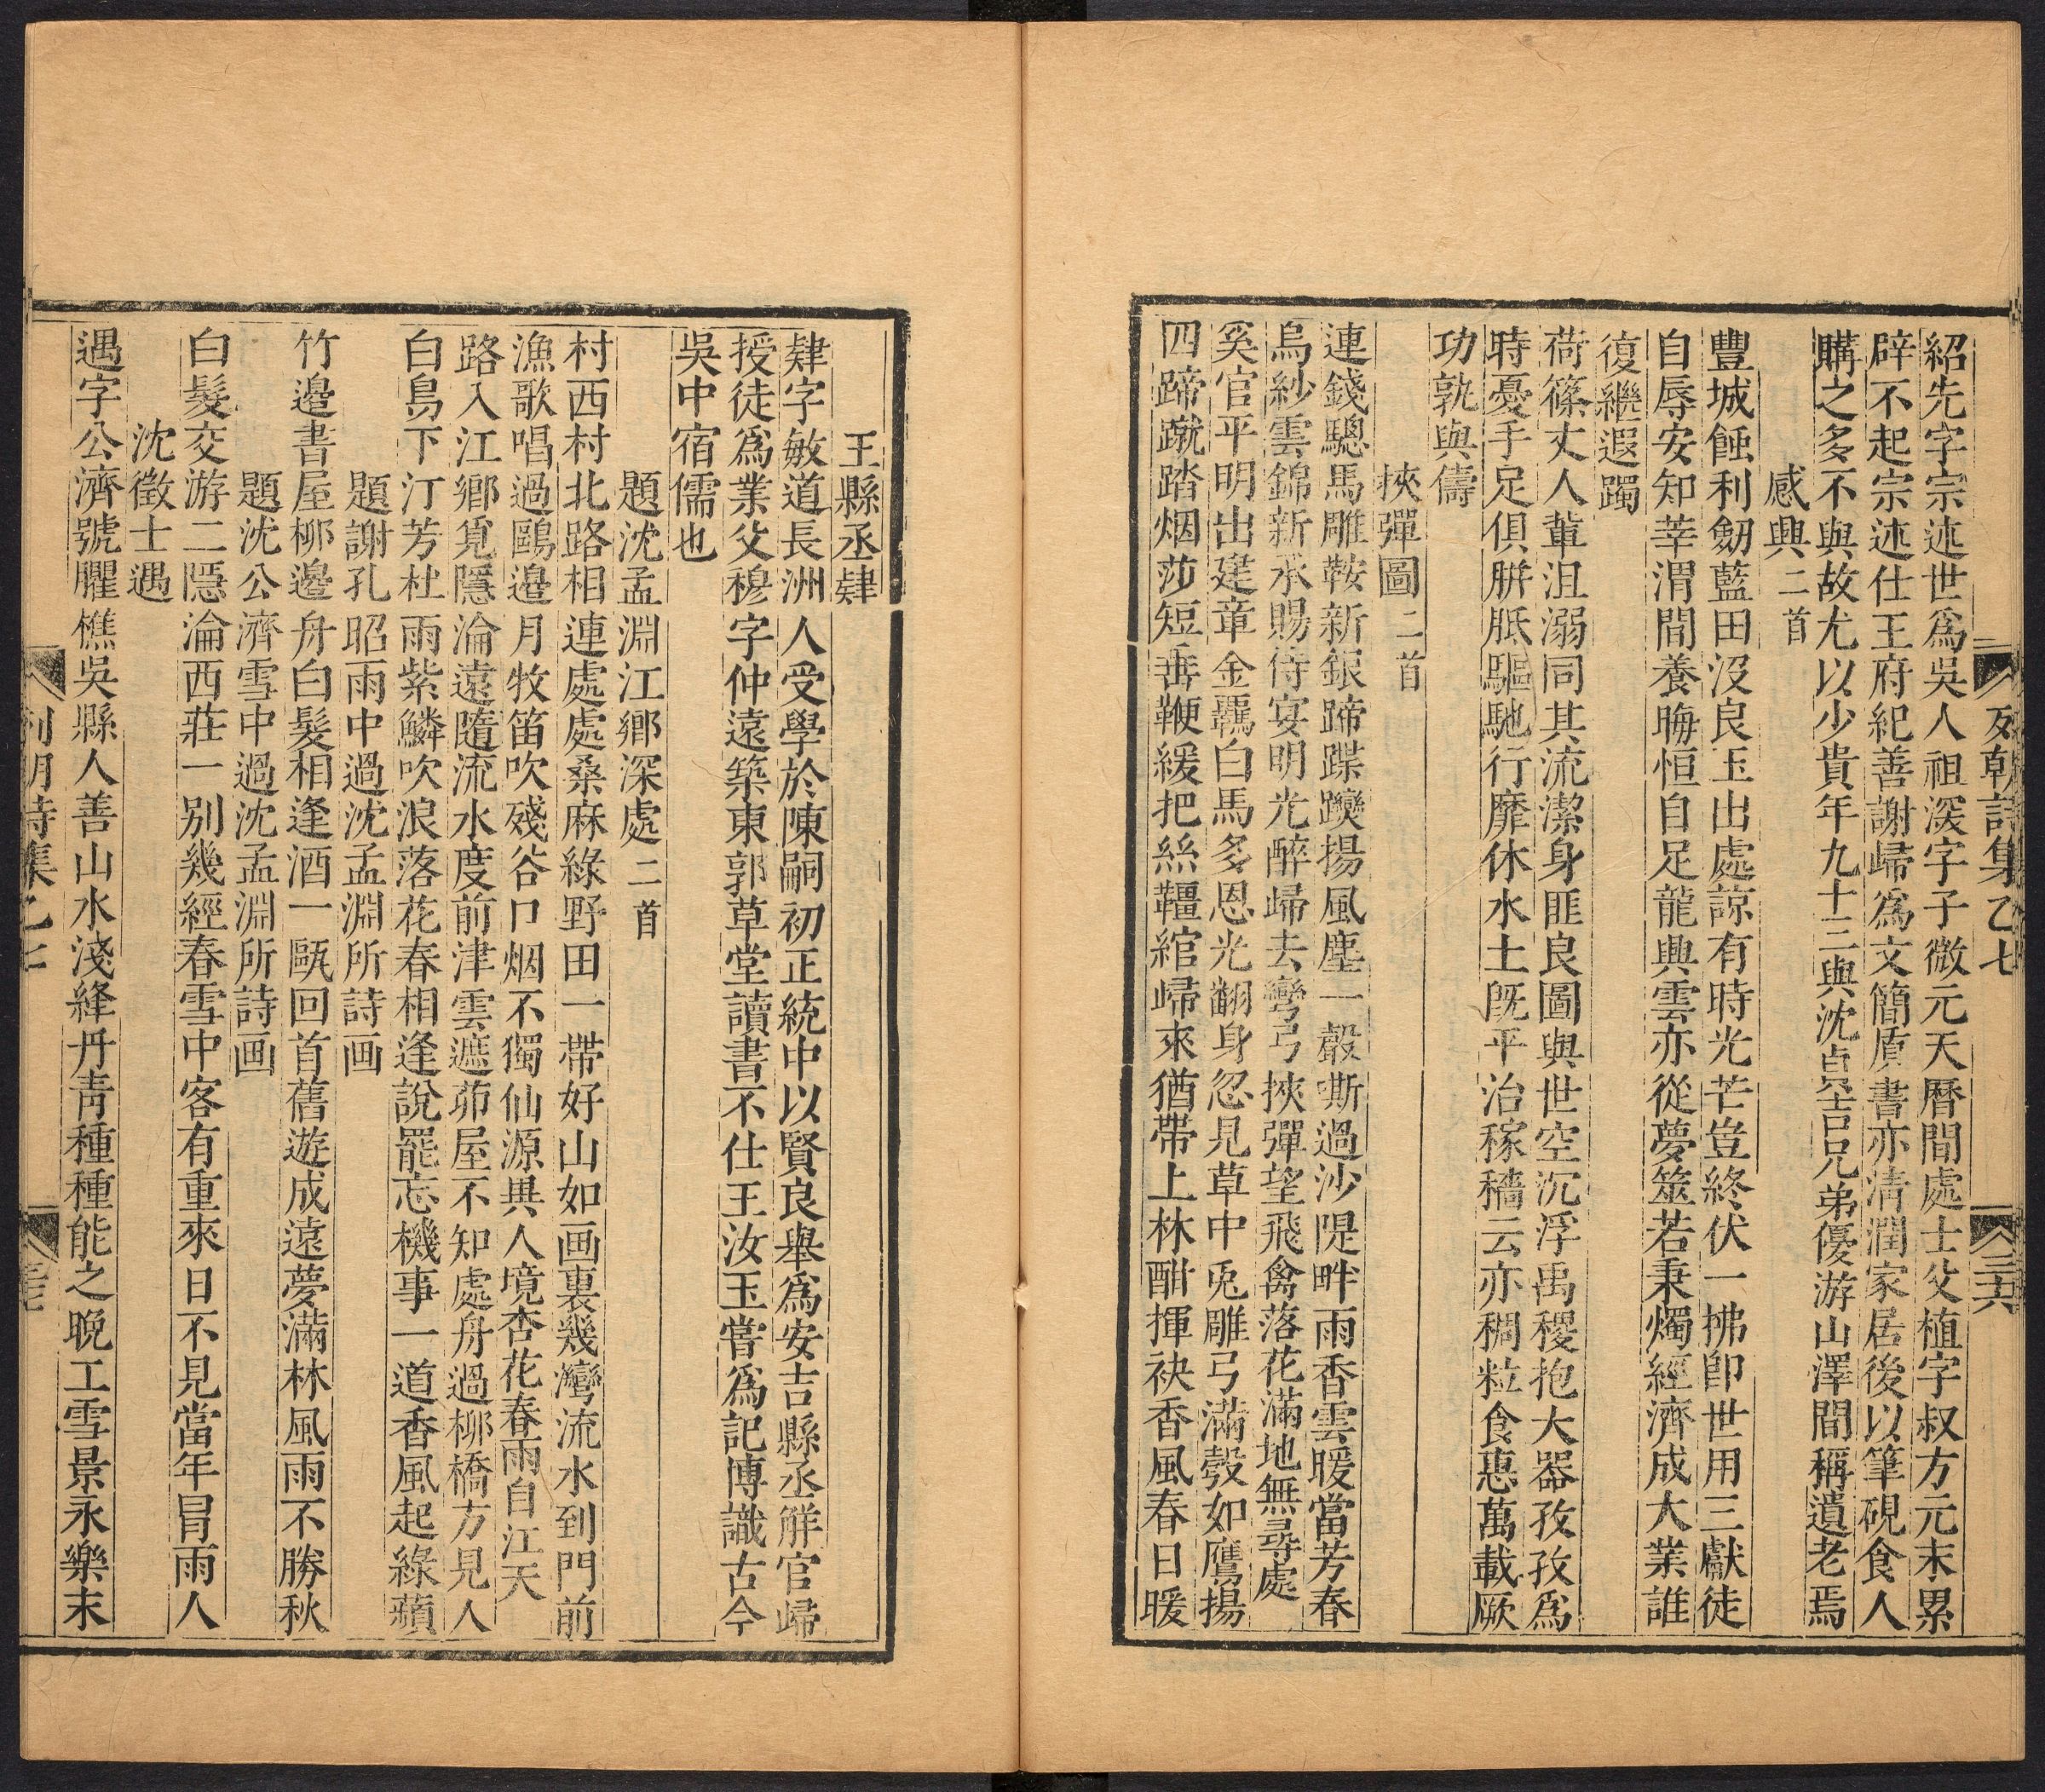 紹先字宗述世為吳人祖深字子微元天曆間處士父植字叔方元末累
辟不起宗述仕王府紀善謝歸為文簡質書亦清潤家居後以筆硯食人
購之多不與故尤以少貴年九十三與沈貞吉兄弟優游山澤間稱遺老焉
感興二首
豐城蝕利劒藍田沒良玉出處諒有時光芒豈終伏一拂即世用三獻徒
自辱安知莘渭間養晦恒自足龍興雲亦從夢筮若秉燭經濟成大業誰
復繼遐躅
荷篠丈人輩沮溺同其流潔身匪良圖與世空沉浮禹稷抱大器孜孜為
時憂手足俱胼胝驅馳行靡休水土旣平治稼穡云亦稠粒食惠萬載厥
功孰與儔
挾彈圖二首
連錢驄馬雕鞍新銀蹄蹀躞揚風塵一聲嘶過沙隄畔雨香雲暖當芳春
烏紗雲錦新承賜侍宴明光醉歸去彎弓挾彈望飛禽落花滿地無尋處
奚官平明出建章金羈白馬多恩光翻身忽見草中兎雕弓滿彀如鷹揚
四蹄蹴踏烟莎短垂鞭緩把絲韁綰歸來猶帶上林酣揮袂香風春日暖
列朝詩集乙七
三六
王縣丞肄
肄字敏道長洲人受學於陳嗣初正統中以賢良舉為安吉縣丞解官歸
授徒為業父穆字仲遠築東郭草堂讀書不仕王汝玉嘗為記博識古今
吳中宿儒也
題沈孟淵江鄉深處二首
村西村北路相連處處桑麻綠野田一帶好山如画裏幾灣流水到門前
漁歌唱過鷗邉月牧笛吹殘谷口烟不獨仙源異人境杏花春雨自江天
路入江鄉覓隱淪遠隨流水度前津雲遮茆屋不知處舟過柳橋方見人
白鳥下汀芳杜雨紫鱗吹浪落花春相逢說罷忘機事一道香風起綠蘋
題謝孔昭雨中過沈孟淵所詩画
竹邉書屋柳邉舟白髮相逢酒一甌回首舊遊成遠夢滿林風雨不勝秋
題沈公濟雪中過沈孟淵所詩画
白髮交游二隱淪西莊一別幾經春雪中客有重來日不見當年冒雨人
沈徵士遇
遇字公濟號臞樵吳縣人善山水淺絳丹靑種種能之晚工雪景永樂末
列朝詩集乙七